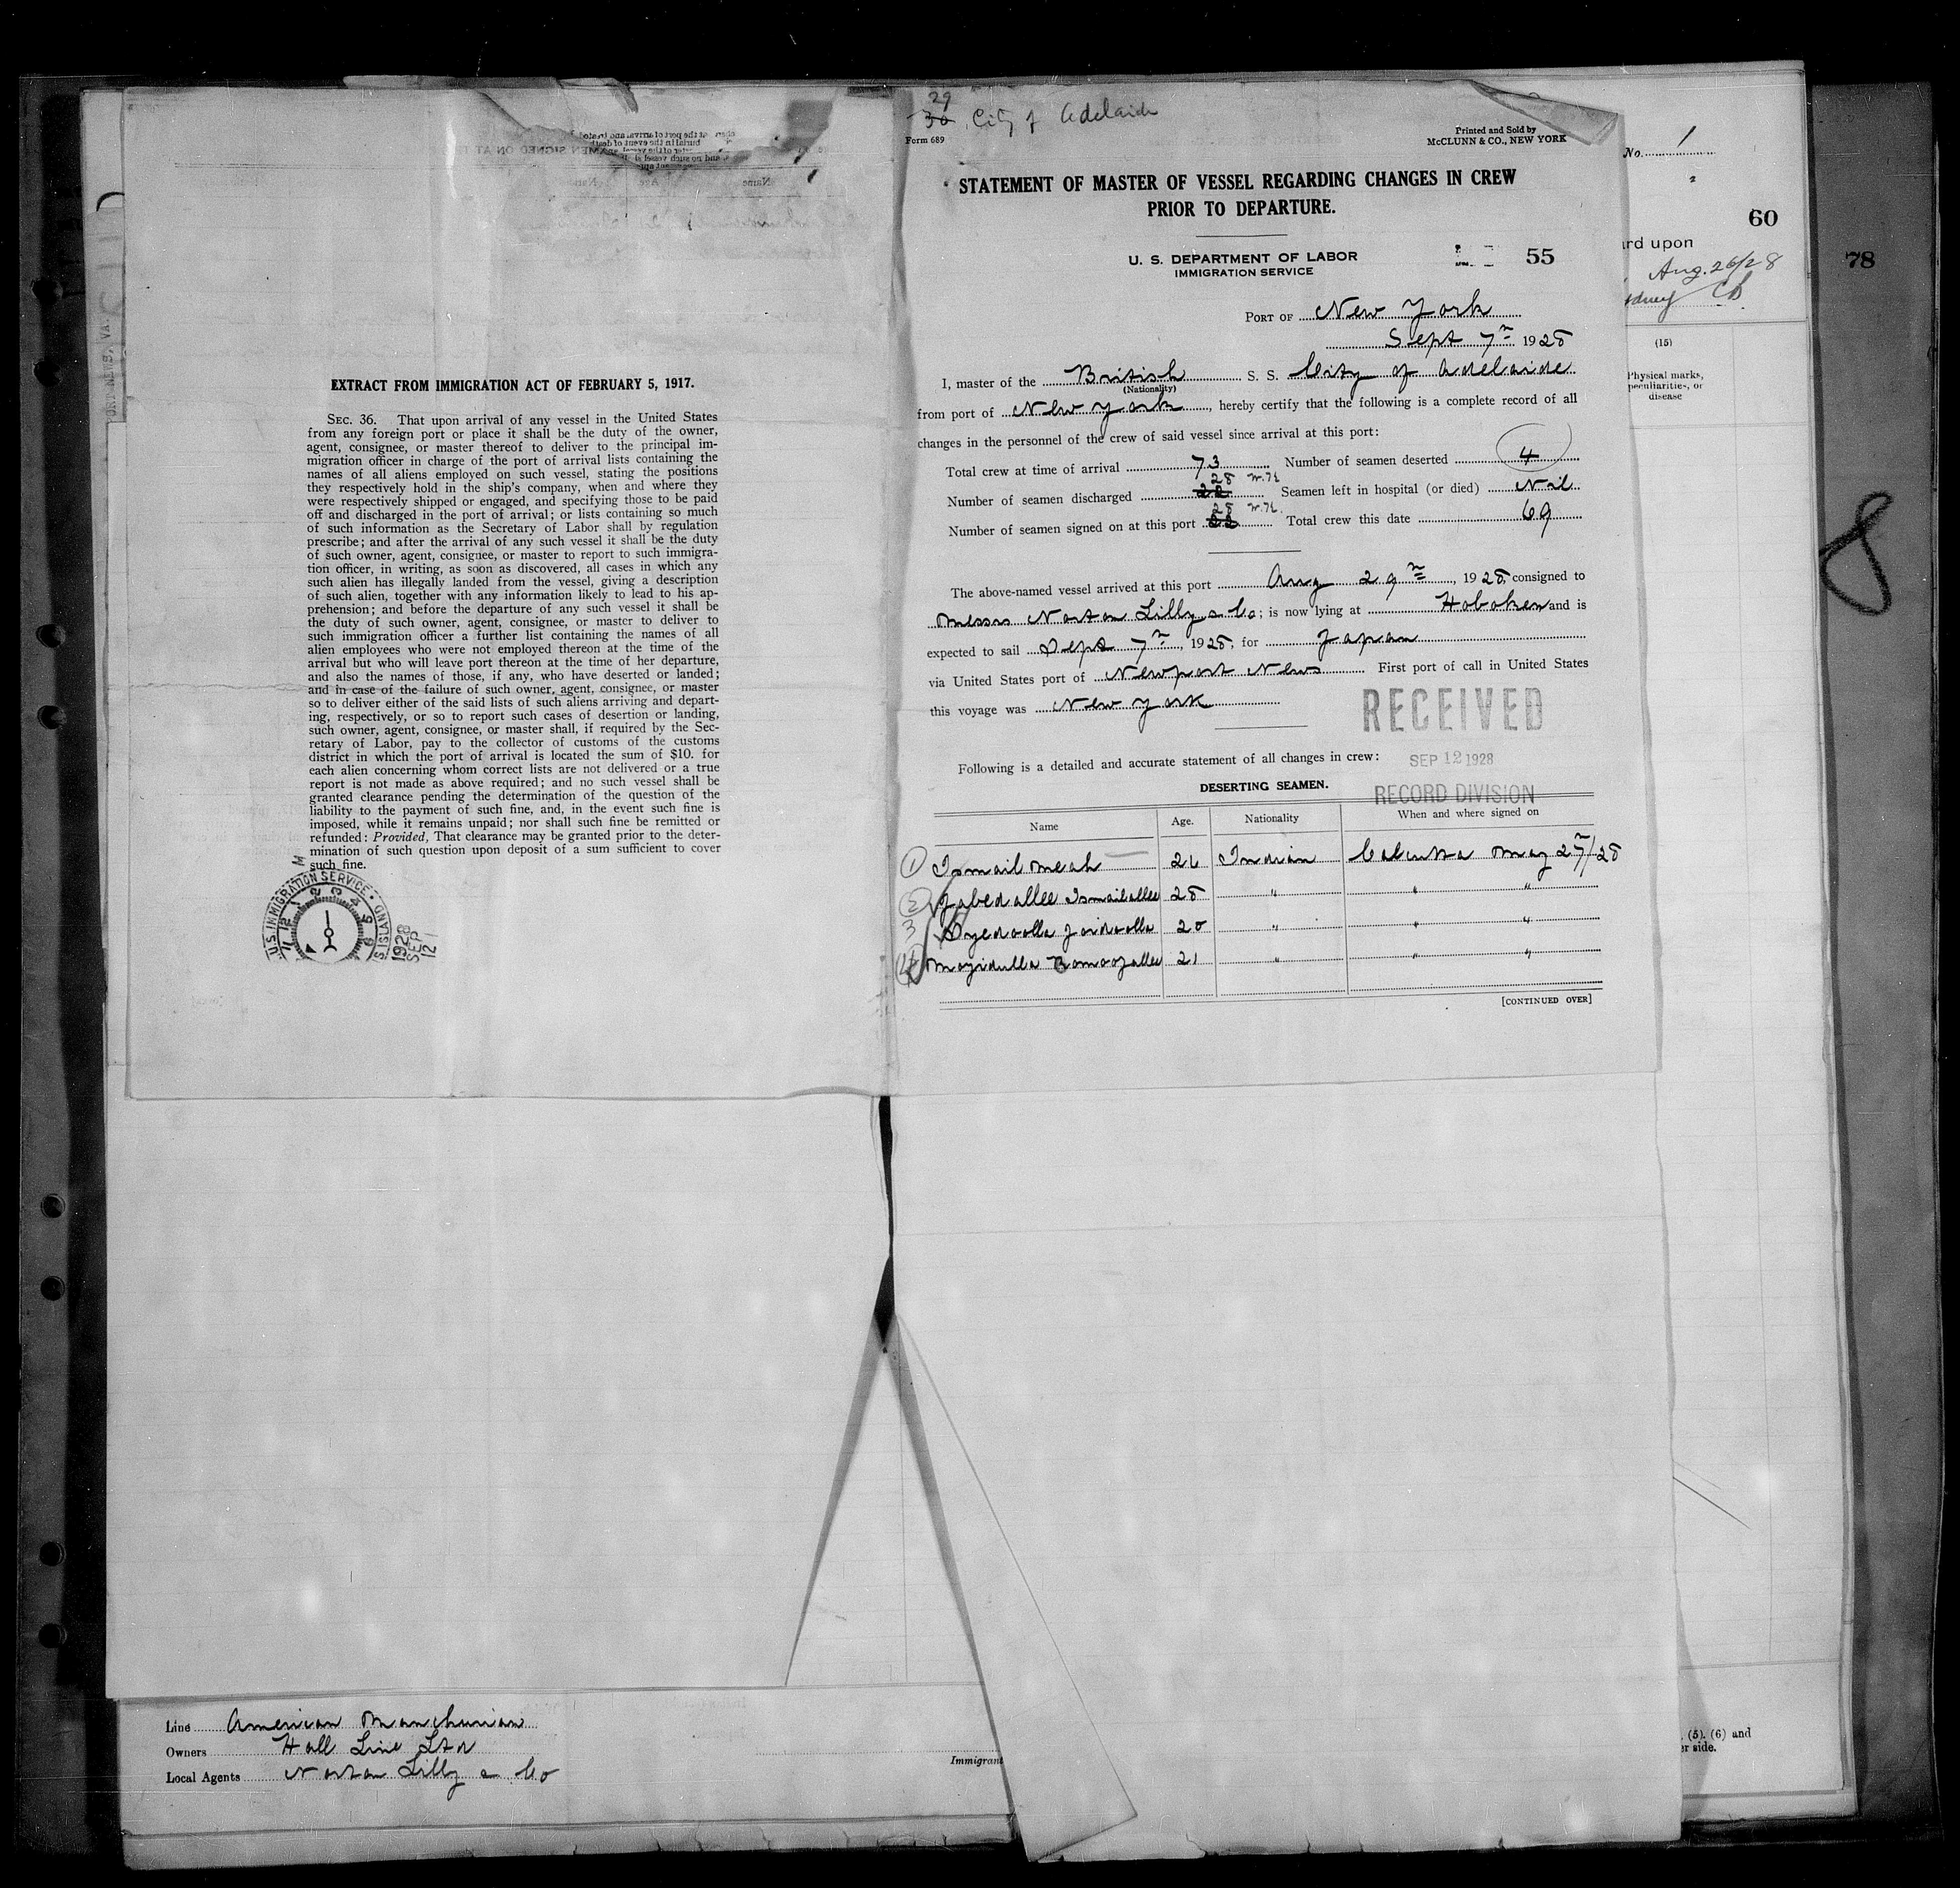 EXTRACT FROM IMMIGRATION ACT OF FEBRUARY 5, 1917.
SEC. 36. That upon arrival of any vessel in the United States
from any foreign port or place it shall be the duty of the owner,
agent, consignee, or master thereof to deliver to the principal im-
migration officer in charge of the port of arrival lists containing the
names of all aliens employed on such vessel, stating the positions
they respectively hold in the ship's company, when and where they
were respectively shipped or engaged, and specifying those to be paid
off and discharged in the port of arrival; or lists containing so much
of such information as the Secretary of Labor shall by regulation
prescribe; and after the arrival of any such vessel it shall be the duty
of such owner, agent, consignee, or master to report to such immigra-
tion officer, in writing, as soon as discovered, all cases in which any
such alien has illegally landed from the vessel, giving a description
of such alien, together with any information likely to lead to his ap-
prehension; and before the departure of any such vessel it shall be
the duty of such owner, agent, consignee, or master to deliver to
such immigration officer a further list containing the names of all
alien employees who were not employed thereon at the time of the
arrival but who will leave port thereon at the time of her departure,
and also the names of those, if any, who have deserted or landed;
and in case of the failure of such owner, agent, consignee, or master
so to deliver either of the said lists of such aliens arriving and depart-
ing, respectively, or so to report such cases of desertion or landing,
such owner, agent, consignee, or master shall, if required by the Sec-
retary of Labor, pay to the collector of customs of the customs
district in which the port of arrival is located the sum of $10. for
each alien concerning whom correct lists are not delivered or a true
report is not made as above required; and no such vessel shall be
granted clearance pending the determination of the question of the
liability to the payment of such fine, and, in the event such fine is
imposed, while it remains unpaid; nor shall such fine be remitted or
refunded: Provided, That clearance may be granted prior to the deter-
mination of such question upon deposit of a sum sufficient to cover
such fine.
U.S. IMMIGRATION SERVICE
1928
SEP
12
29
30 City of Adelaide
Form 689
Printed and Sold by
McCLUNN & CO., NEW YORK
STATEMENT OF MASTER OF VESSEL REGARDING CHANGES IN CREW
PRIOR TO DEPARTURE.
U. S. DEPARTMENT OF LABOR
IMMIGRATION SERVICE
55
PORT OF New York
Sept 7th 1928
I, master of the British S. S. City of Adelaide
(Nationality)
from port of New York, hereby certify that the following is a complete record of all
changes in the personnel of the crew of said vessel since arrival at this port:
Total crew at time of arrival 73 Number of seamen deserted 4
Number of seamen discharged 28 Seamen left in hospital (or died) Nil
Number of seamen signed on at this port 28 Total crew this date 69
The above-named vessel arrived at this port Aug 29th, 1928, consigned to
Messrs Norton Lilly & Co; is now lying at Hoboken and is
expected to sail Sept 7th, 1928, for Japan
via United States port of Newport News First port of call in United States
this voyage was New York
RECEIVED
Following is a detailed and accurate statement of all changes in crew:
SEP 12 1928
DESERTING SEAMEN.
RECORD DIVISION
Name Age. Nationality When and where signed on
1 Ismail Meah 26 Indian Calcutta May 27th/28
2 Jabed allee Ismailallee 28 " " "
3 Syedoolla Joidoolla 20 " " "
4 Mozidulla Romoozallee 21 " " "
[CONTINUED OVER]
No. 1
60
78
8
rd upon
Aug. 26/28
(15)
Physical marks,
peculiarities, or
disease
Line American Manchurian
Owners Hall Line Ltd
Local Agents Norton Lilly & Co
Immigrant
(5). (6) and
er side.